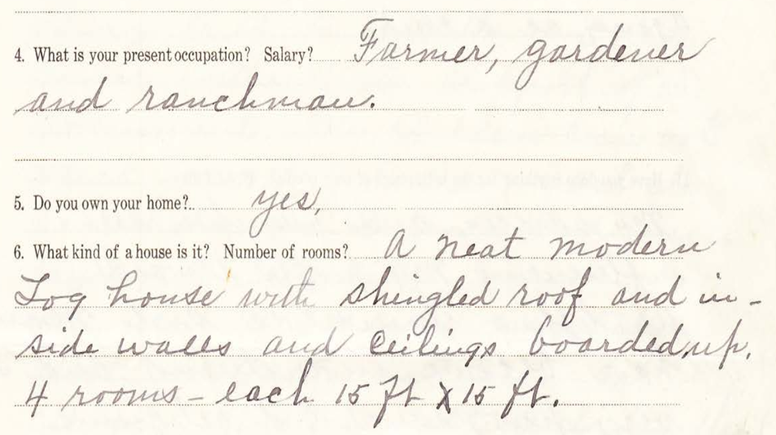 4. What is your present occupation? Salary? Farmer, gardener
and ranchman.
5. Do you own your home? yes,
6. What kind of a house is it? Number of rooms? A neat modern
Log house with shingled roof and in-
side walls and ceilings boarded up.
4 rooms - each 15 ft X 15 ft.